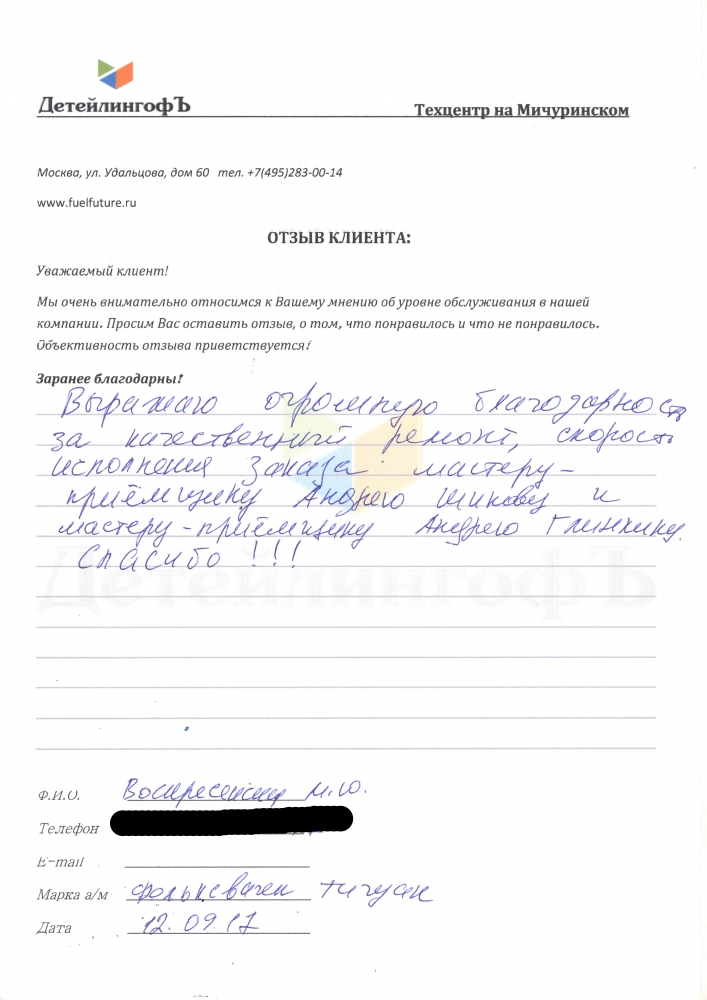 ДетейлингофЪ
Техцентр на Мичуринском
Москва, ул. Удальцова, дом 60 тел. +7(495)283-00-14
www.fuelfuture.ru
ОТЗЫВ КЛИЕНТА:
Уважаемый клиент!
Мы очень внимательно относимся к Вашему мнению об уровне обслуживания в нашей
компании. Просим Вас оставить отзыв, о том, что понравилось и что не понравилось.
Объективность отзыва приветствуется!
Заранее благодарны!
Выражаю огромную благодарность
за качественный ремонт, скорость
исполнения заказа мастеру-
приёмщику Андрею Шикову и
мастеру-приёмщику Андрею Глинкину.
Спасибо !!!
ДетейлингофЪ
Ф.И.О. М.Ю.
Телефон
E-mail
Марка а/м фольксваген тигуан
Дата 12.09.17